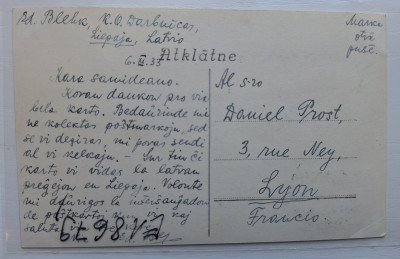 Ed. Blehk, K.O. Darbnīcas,
Liepaja, Latvio
6. II. 33
Atklātne
Marka
otrā
pusē.
Kara samideano.
Koran dankon pro via
bela karto. Bedaŭrinde mi
ne kolektas poŝtmarkojn, sed
se vi deziras, mi povas sendi
al vi kelkajn. – Sur tiu ĉi
karto vi vidas la latvan
preĝejon en Liepaja. Volonte
mi daŭrigos la interŝanĝadon
de poŝtkartoj kun vi kaj
salutas vi
Al s-ro
Daniel Prost,
3, rue Ney,
Lyon
Francio.